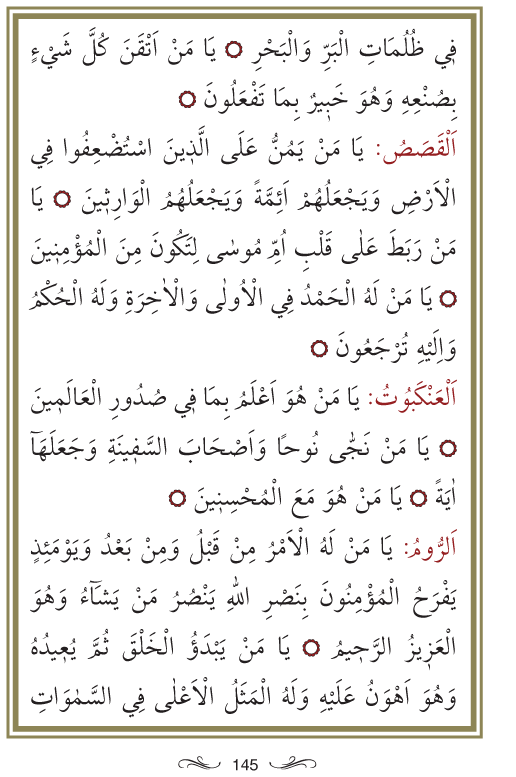 فِي ظُلُمَاتِ الْبَرِّ وَالْبَحْرِ ۞ يَا مَنْ اَتْقَنَ كُلَّ شَيْءٍ
بِصُنْعِهِ وَهُوَ خَبِيرٌ بِمَا تَفْعَلُونَ ۞
اَلْقَصَصُ: يَا مَنْ يَمُنُّ عَلَى الَّذِينَ اسْتُضْعِفُوا فِي
الْاَرْضِ وَيَجْعَلُهُمْ اَئِمَّةً وَيَجْعَلُهُمُ الْوَارِثِينَ ۞ يَا
مَنْ رَبَطَ عَلٰى قَلْبِ اُمِّ مُوسٰى لِتَكُونَ مِنَ الْمُؤْمِنِينَ
۞ يَا مَنْ لَهُ الْحَمْدُ فِي الْاُولٰى وَالْاٰخِرَةِ وَلَهُ الْحُكْمُ
وَاِلَيْهِ تُرْجَعُونَ ۞
اَلْعَنْكَبُوتُ: يَا مَنْ هُوَ اَعْلَمُ بِمَا فِي صُدُورِ الْعَالَمِينَ
۞ يَا مَنْ نَجّٰى نُوحًا وَاَصْحَابَ السَّفِينَةِ وَجَعَلَهَٓا
اٰيَةً ۞ يَا مَنْ هُوَ مَعَ الْمُحْسِنِينَ ۞
اَلرُّومُ: يَا مَنْ لَهُ الْاَمْرُ مِنْ قَبْلُ وَمِنْ بَعْدُ وَيَوْمَئِذٍ
يَفْرَحُ الْمُؤْمِنُونَ بِنَصْرِ اللّٰهِ يَنْصُرُ مَنْ يَشَٓاءُ وَهُوَ
الْعَزِيزُ الرَّحِيمُ ۞ يَا مَنْ يَبْدَؤُ الْخَلْقَ ثُمَّ يُعِيدُهُ
وَهُوَ اَهْوَنُ عَلَيْهِ وَلَهُ الْمَثَلُ الْاَعْلٰى فِي السَّمٰوَاتِ
145